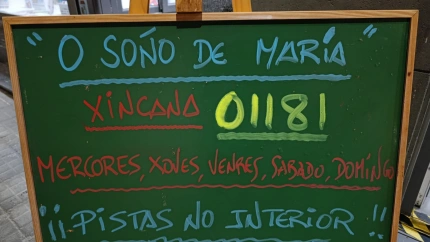 "O SOÑO DE MARIA"
XINCANA 01181
MERCORES, XOVES, VENRES, SABADO, DOMINGO
¡¡ PISTAS NO INTERIOR !!